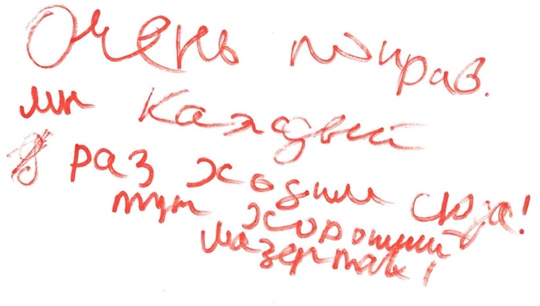 Очень нрав.
мы каждый
раз ходим сюда!
тут хороший
лазертаг!